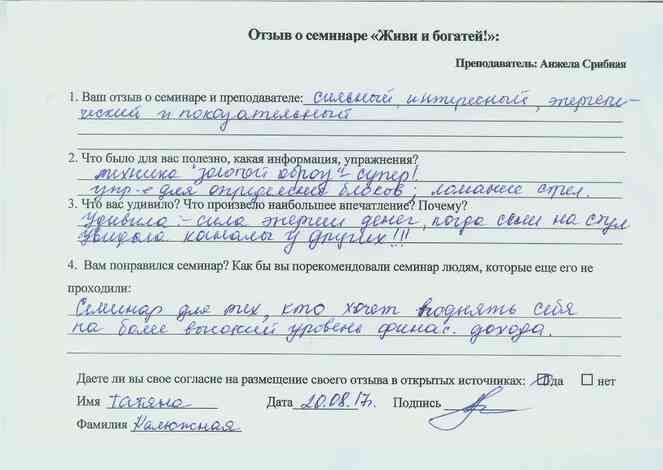 Отзыв о семинаре «Живи и богатей!»:
Преподаватель: Анжела Срибная
1. Ваш отзыв о семинаре и преподавателе: сильный, интересный, энергети-
ческий и показательный
2. Что было для вас полезно, какая информация, упражнения?
техника "золотой образ" - супер!
упр-е для определения блоков; ломание стрел.
3. Что вас удивило? Что произвело наибольшее впечатление? Почему?
Удивила - сила энергии денег, когда сели на стул
Увидела каналы у других!!!
4. Вам понравился семинар? Как бы вы порекомендовали семинар людям, которые еще его не
проходили:
Семинар для тех, кто хочет поднять себя
на более высокий уровень финас. дохода.
Даете ли вы свое согласие на размещение своего отзыва в открытых источниках: да нет
Имя Татяна Дата 20.08.17г. Подпись
Фамилия Калюжная